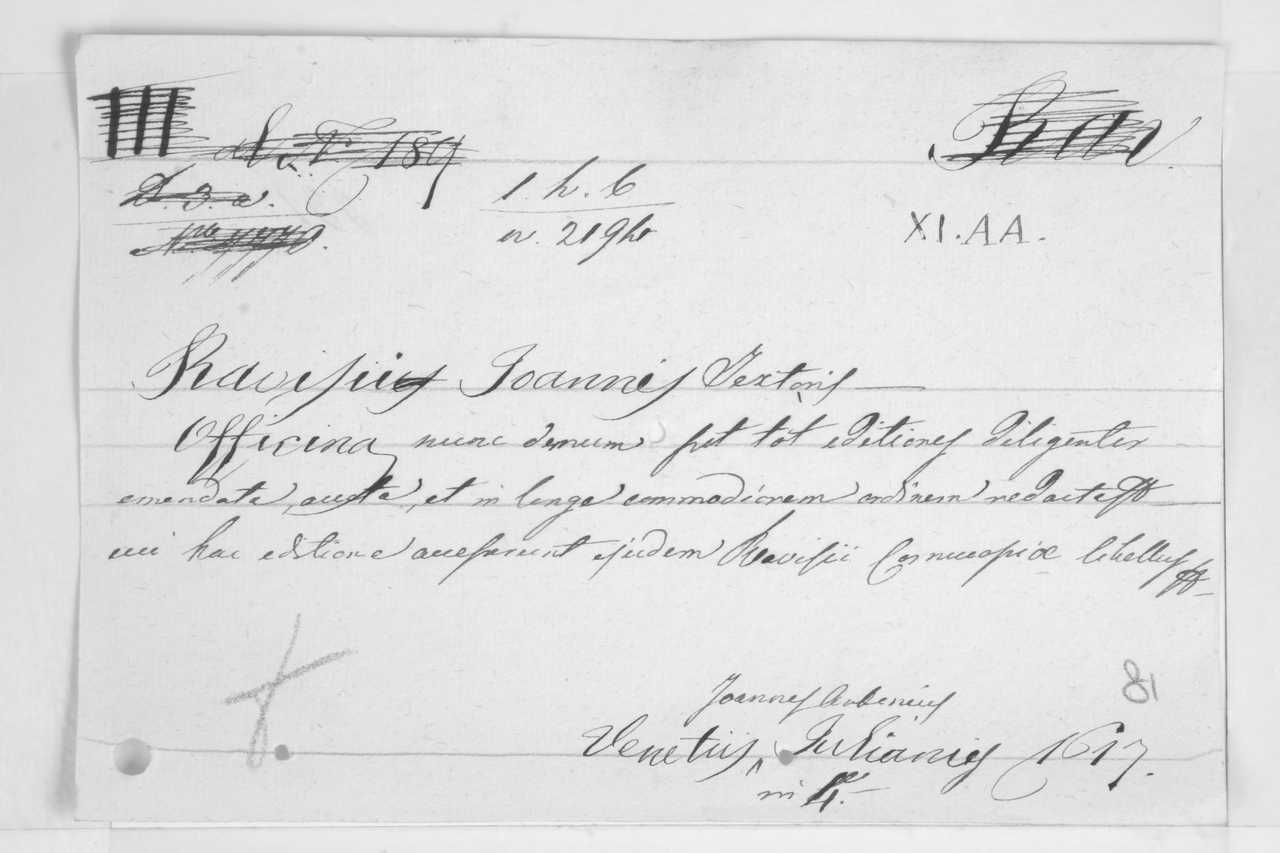 III
D. 3. a.
1. h. 6
XI. AA.
Ravisii Joannis Textoris
Officina nunc demum pst tot editiones diligenter
emendata, aucta, et in longe commodiorem ordinem redacta
cui hac editione accesserunt ejusdem Ravisii Cornucopiæ libellus
Joannes
Venetiis Julianis 1617.
in 4.